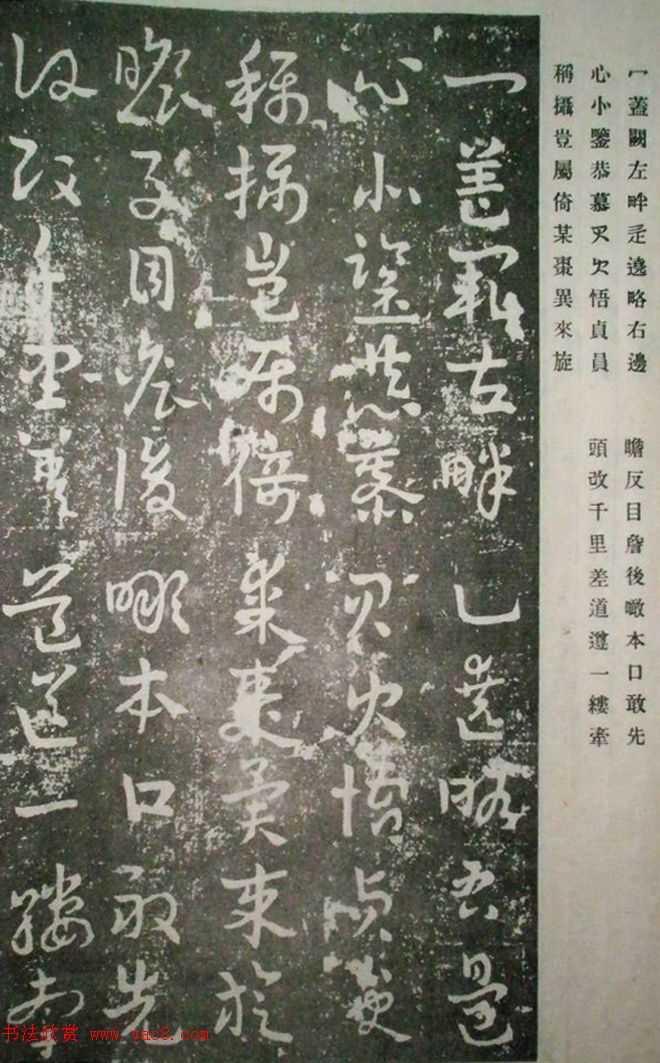 冖蓋闕左畔辵遶略右邊
心小鑒恭慕悟貞員
稱攝豈屬倚某棗異來旋
瞻反目詹後瞰本口敢先
頭改千里差道遵一縷牽
冖蓋闕左畔辵遶略右邊
心小鑒恭慕悟貞員
稱攝豈屬倚某棗異來旋
瞻反目詹後瞰本口敢先
頭改千里差道遵一縷牽
书法欣赏 www.yac8.com